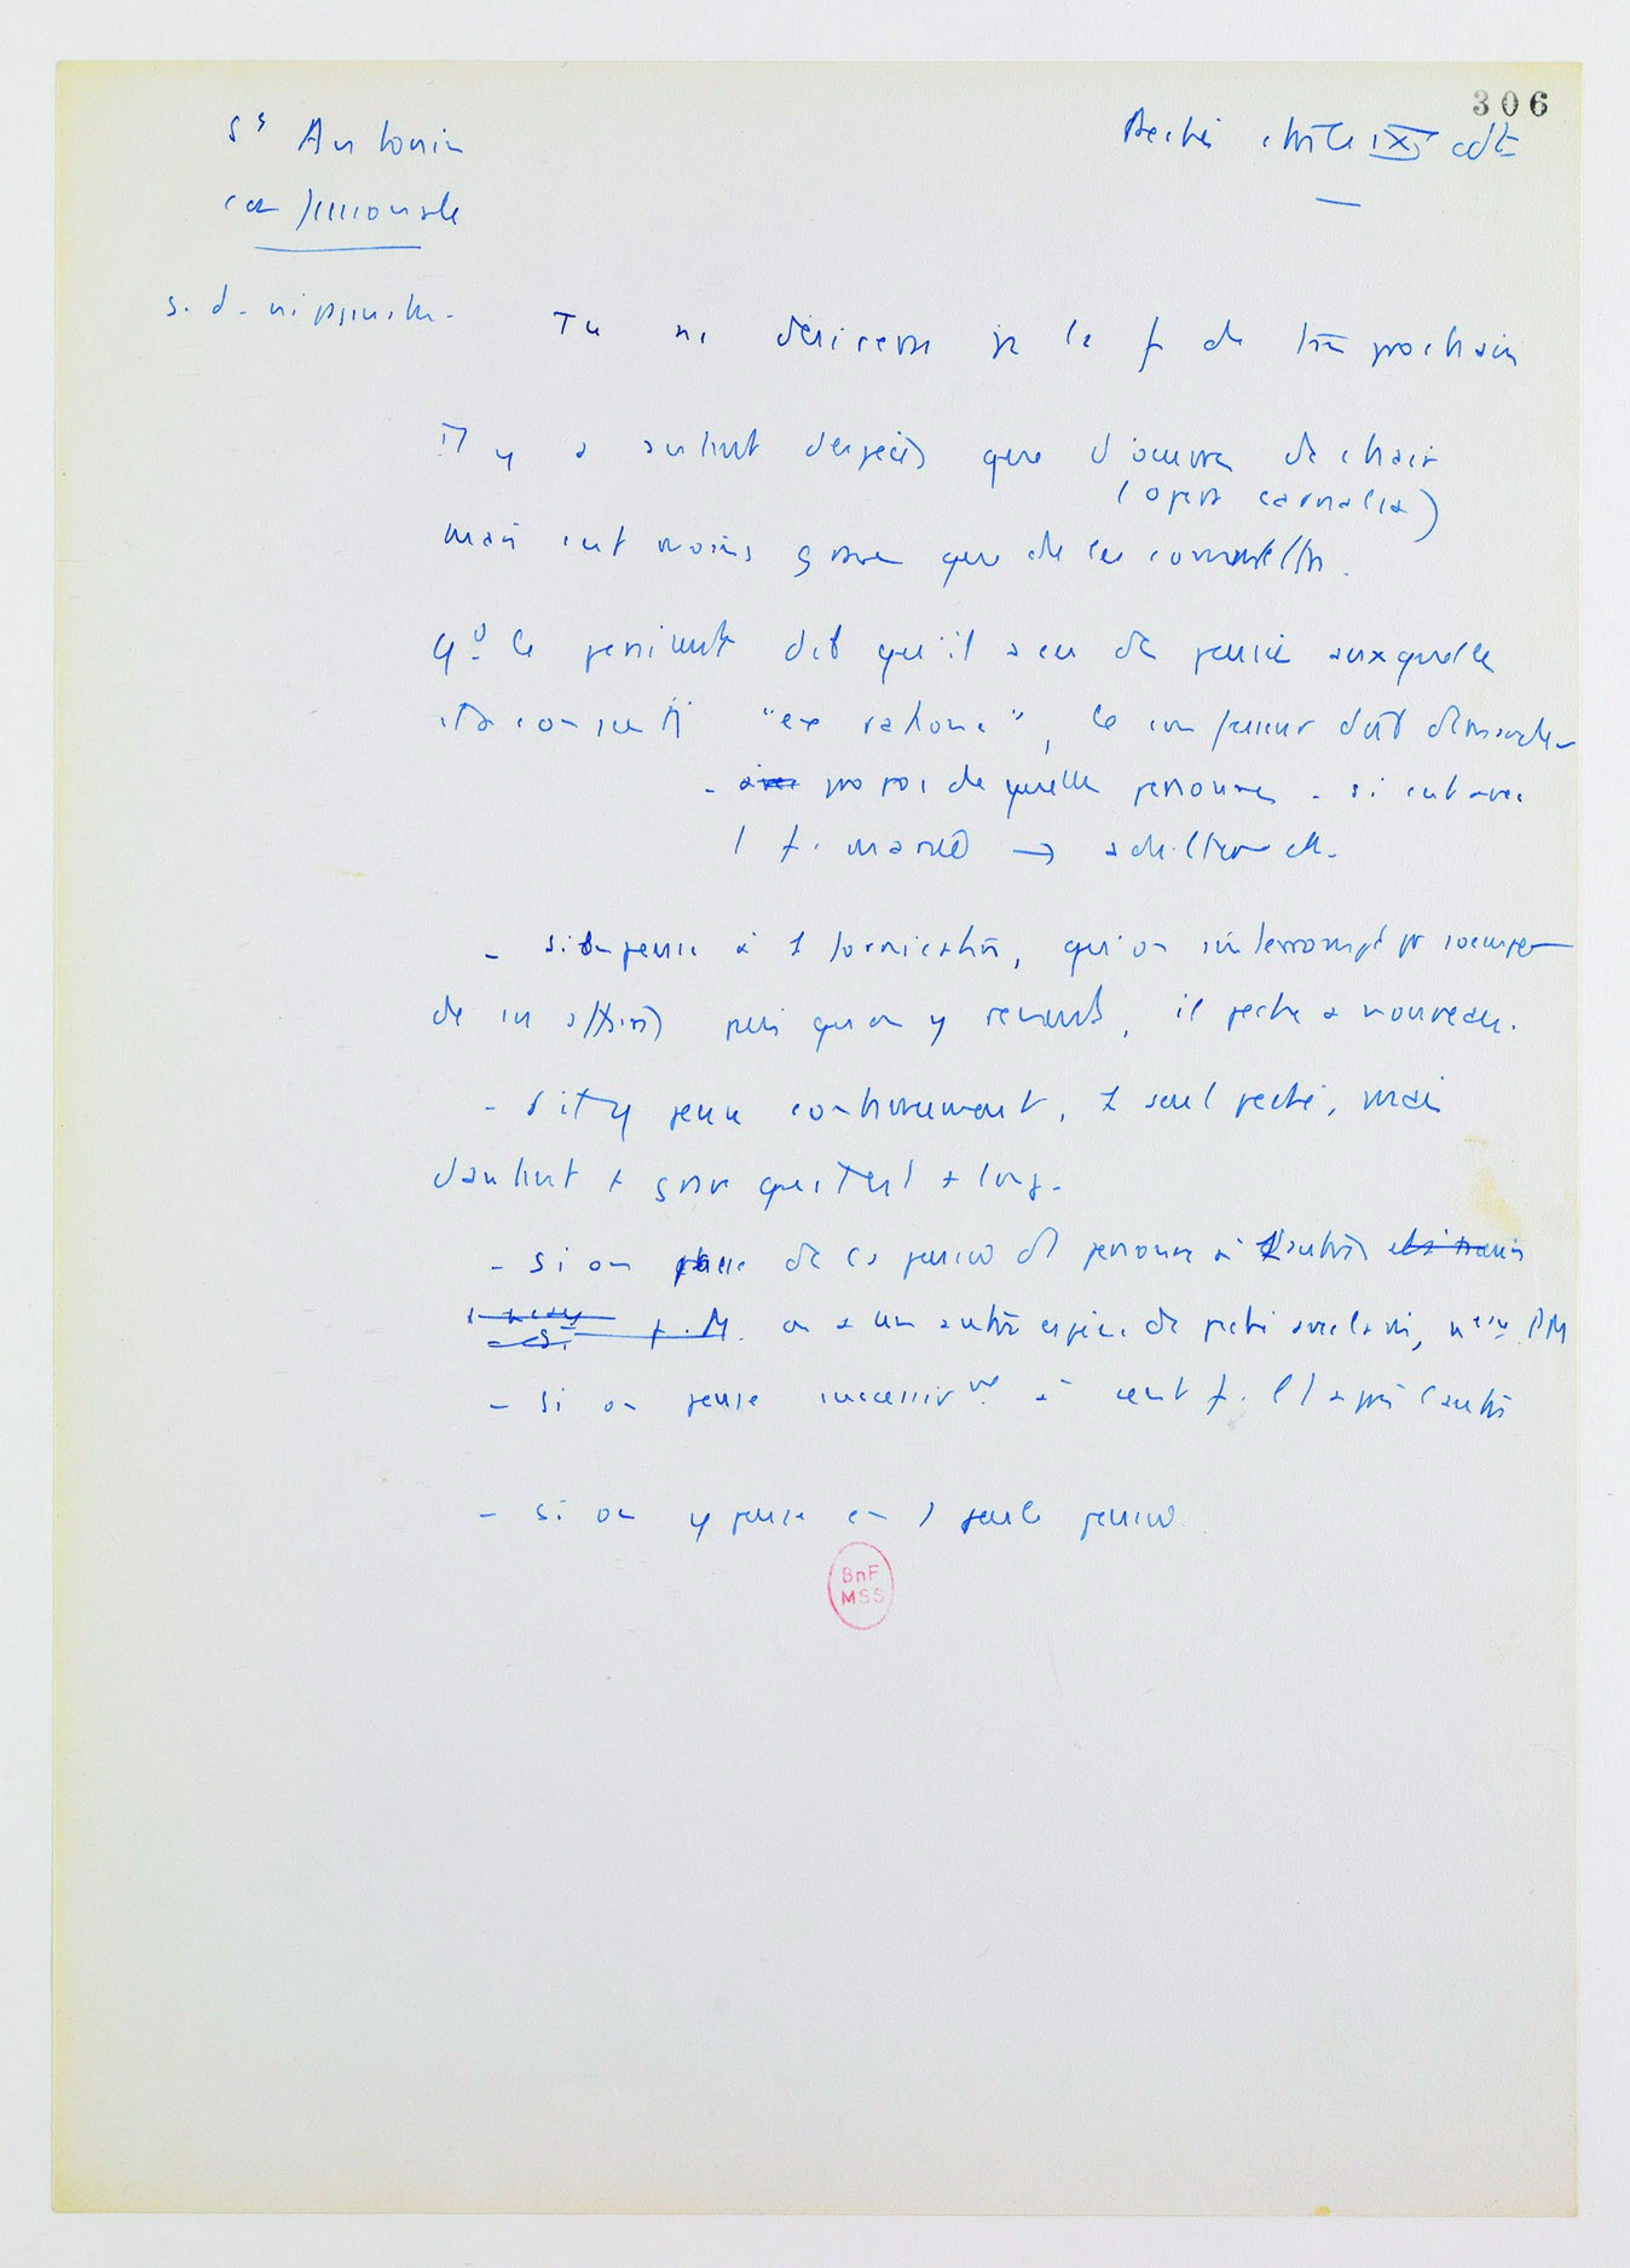 306
St Antonin
confessionale
Péché contre IXe cdt
Tu ne désireras pas la f de ton prochain
Il y a autant d'espèces que d'œuvres de chair
(opera carnalia)
mais c'est moins grave que de les commettre.
Qd le pénitent dit qu'il a eu des pensées auxquelles
il a consenti "ex ratione", le confesseur doit demander
- avec propos de quelle personne - si c'est avec
1 f. mariée → adultère etc.
- si on pense à 1 fornication, qu'on interrompt pr s'occuper
de ses affaires puis qu'on y revient, il pèche à nouveau.
- s'il y pense continuement, 1 seul péché, mais
d'autant + grave qu'il est + long.
- si on passe de ces pensées d'1 personne à l'autre
f. M. on a une autre espèce de péché
- si on pense successivt à cent f. l'1 après l'autre
- si on y pense en 1 seule pensée
BnF
MSS